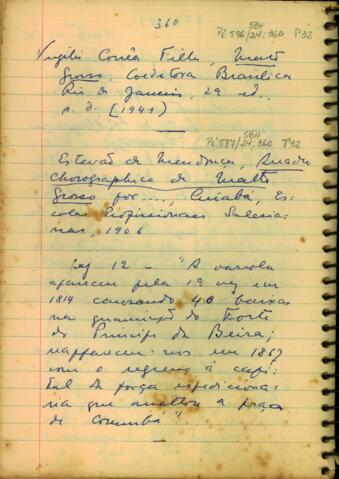 360
SBH
Pi 596/24:360 P32
Virgilio Corrêa Filho, Matto
Grosso, Coeditora Brasilica
Rio de Janeiro, 2ª ed.,
s. d. [1941]
SBH
Pi 587/24:360 P32
Estevão de Mendonça, Quadro
Chorographico de Matto
Grosso por ...., Cuiabá, Es-
colas Profissionaes Salesia-
nas, 1906
pag 12 - "A variola
appareceu pela 1ª vez em
1814 causando 40 baixas
na guarnição do Forte
do Principe da Beira;
reappareceu-nos em 1867
com o regresso à capi-
tal da força expediciona-
ria que assaltou a praça
de Corumbá"